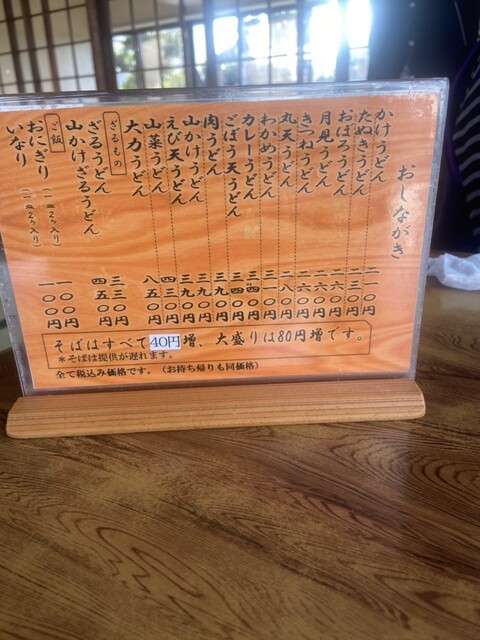 おしながき
かけうどん 二一〇円
たぬきうどん 二三〇円
おぼろうどん 二六〇円
月見うどん 二六〇円
きつねうどん 二六〇円
丸天うどん 二八〇円
わかめうどん 三一〇円
カレーうどん 三四〇円
ごぼう天うどん 三四〇円
肉うどん 三九〇円
山かけうどん 三九〇円
えび天うどん 三九〇円
山菜うどん 四三〇円
大力うどん 八五〇円
ざるもの
ざるうどん 三三〇円
山かけざるうどん 四五〇円
ご飯
おにぎり(一皿2ヶ入り) 一〇〇円
いなり(一皿2ヶ入り) 一〇〇円
そばはすべて40円増、大盛りは80円増です。
*そばは提供が遅れます。
全て税込み価格です。(お持ち帰りも同価格)